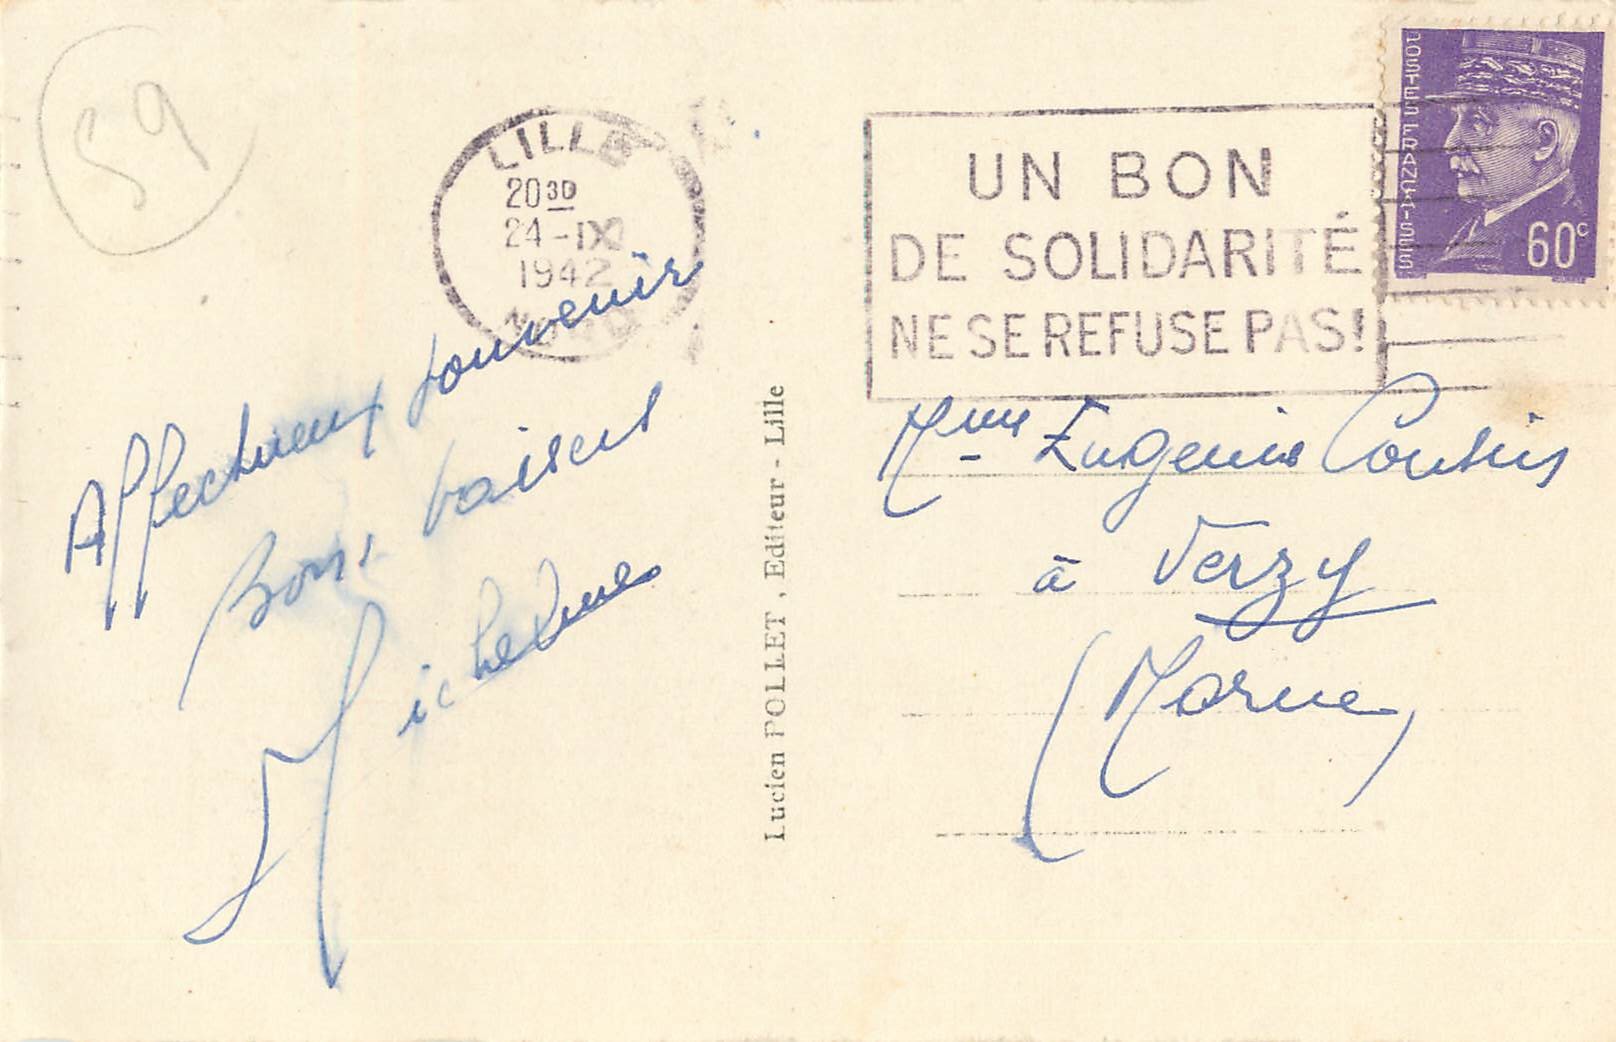 59
LILLE
20 30
24 - IX
1942
NORD
UN BON
DE SOLIDARITÉ
NE SE REFUSE PAS!
POSTES FRANÇAISES
60c
Affectueux souvenir
Bons baisers
Micheline
Lucien POLLET, Editeur - Lille
Mme Eugenie Cousin
à Verzy
(Marne)